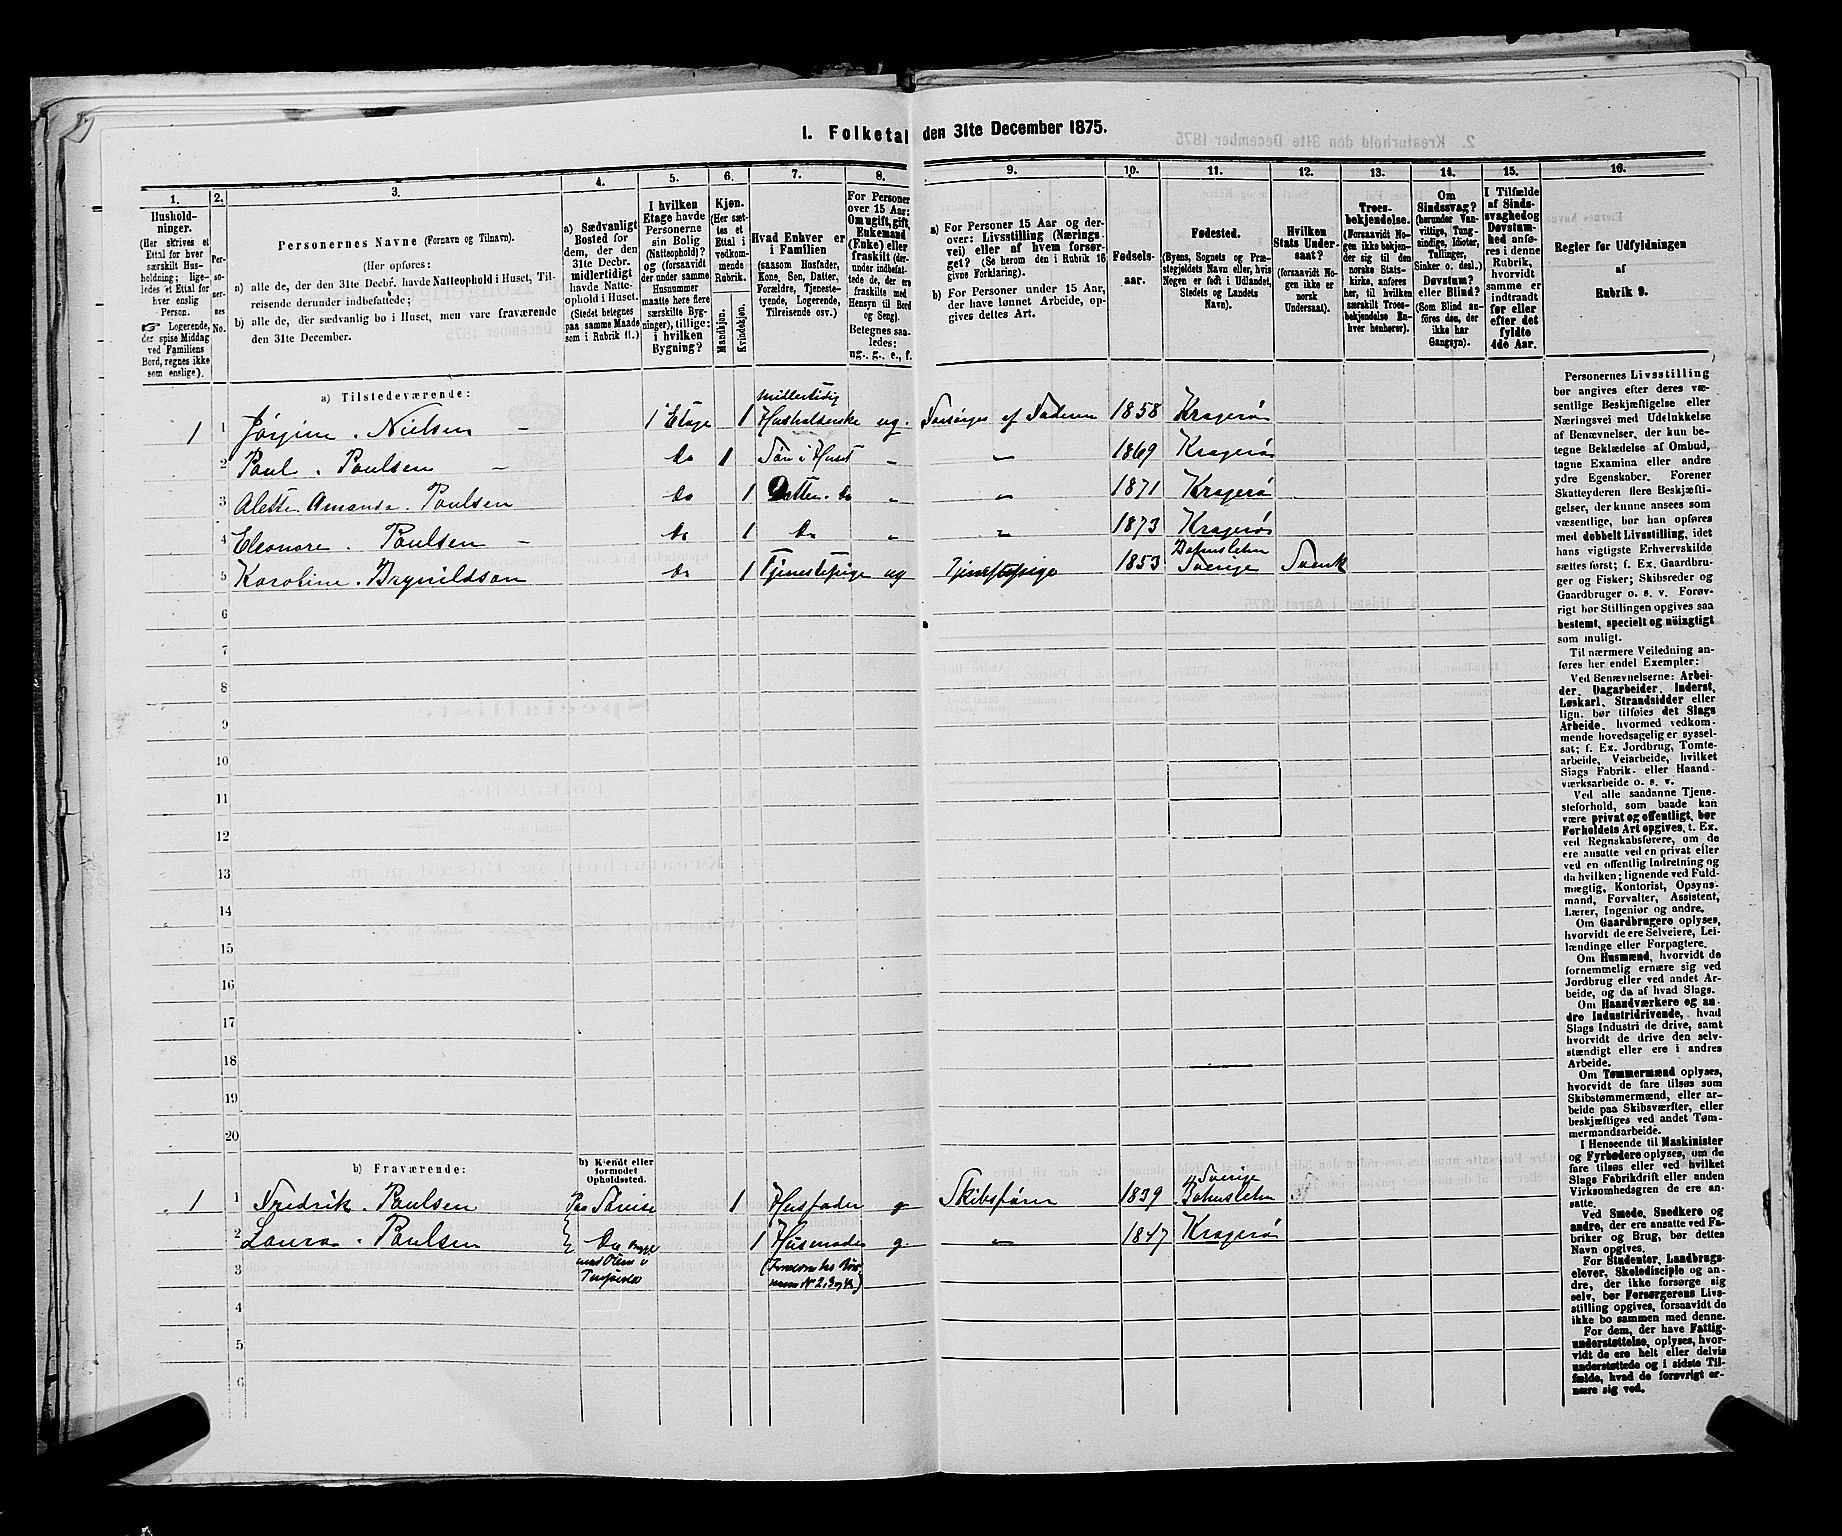 I. Folketal den 31te December 1875.
1.
Hushold-
ninger.
(Her skrives et
Ettal for hver
særskilt Hus-
holdning; lige-
ledes et Ettal for
hver enslig
Person.
☞ Logerende,
der spise Middag
ved Familiens
Bord, regnes ikke
som enslige).
2.
Per-
so-
ner-
nes
No.
3.
Personernes Navne (Fornavn og Tilnavn).
(Her opføres:
a) alle de, der den 31te Decbr. havde Natteophold i Huset, Til-
reisende derunder indbefattede;
b) alle de, der sædvanlig bo i Huset, men vare fraværende
den 31te December.
4.
a) Sædvanligt
Bosted for
dem, der den
31te Decbr.
midlertidigt
havde Natte-
ophold i Huset.
(Stedet betegnes
paa samme Maade
som i Rubrik 11.)
5.
I hvilken
Etage havde
Personerne
sin Bolig
(Natteophold)?
og (forsaavidt
der under samme
Husnummer
maatte høre flere
særskilte Byg-
ninger), tillige:
i hvilken
Bygning?
6.
Kjøn.
(Her sæt-
tes et
Ettal i
vedkom-
mende
Rubrik.
Mandkjøn.
Kvindekjøn.
7.
Hvad Enhver er
i Familien
(saasom Husfader,
Kone, Søn, Datter,
Forældre, Tjeneste-
tyende, Logerende,
Tilreisende osv.)
8.
For Personer
over 15 Aar:
Om ugift, gift,
Enkemand
(Enke) eller
fraskilt (der-
under indbefat-
tede de, der ere
fraskilte med
Hensyn til Bord
og Seng).
Betegnes saa-
ledes:
ug., g., e., f.
9.
a) For Personer 15 Aar og der-
over: Livsstilling (Nærings-
vei) eller af hvem forsør-
get? (Se herom den i Rubrik 16
givne Forklaring).
b) For Personer under 15 Aar,
der have lønnet Arbeide, op-
gives dettes Art.
10.
Fødsels-
aar.
11.
Fødested.
(Byens, Sognets og Præ-
stegjeldets Navn eller, hvis
Nogen er født i Udlandet,
Stedets og Landets
Navn).
12.
Hvilken
Stats Under-
saat?
(forsaavidt No-
gen ikke er
norsk
Undersaat).
13.
Troes-
bekjendelse.
(Forsaavidt No-
gen ikke bekjen-
der sig til den
norske Stats-
kirke, anføres
her, til hvilken
særskilt Troes-
bekjendelse En-
hver henhører).
14.
Om
Sindssvag?
(herunder Van-
vittige, Tung-
sindige, Idioter,
Tullinger,
Sinker o. desl.)
Døvstum?
eller Blind?
(Som Blind an-
føres den, der
ikke har
Gangsyn).
15.
I Tilfælde
af Sinds-
svaghed og
Døvstum-
hed anfø-
res i denne
Rubrik,
hvorvidt
samme er
indtraadt
før eller
efter det
fyldte
4de Aar.
16.
Regler for Udfyldningen
af
Rubrik 9.
a) Tilstedeværende:
1 1 Jørgine. Nielsen - 1 Etage 1 midlertidig Husholderske ug. Forsørges af Faderen 1858 Kragerø
2 Paul. Paulsen - Do 1 Søn i Huset - " 1869 Kragerø
3 Alette Amanda. Paulsen Do 1 Datter. Do " " 1871 Kragerø
4 Eleonore. Paulsen - Do 1 Do " " 1873 Kragerø
5 Karoline. Brynildson Do 1 Tjenestepige ug Tjenestepige 1853 Bahuslehn Sverige Svensk
6
7
8
9
10
11
12
13
14
15
16
17
18
19
20
b) Fraværende:
b) Kjendt eller
formodet
Opholdssted.
1 1 Fredrik. Paulsen Paa 1 Husfader g Skibsfører 1839 Sverige Bahuslehn
2 Laura. Paulsen Do 1 Husmoder g. " 1847 Kragerø
3
4
5
6
Personernes Livsstilling
bør angives efter deres væ-
sentlige Beskjæftigelse eller
Næringsvei med Udelukkelse
af Benævnelser, der kun be-
tegne Beklædelse af Ombud,
tagne Examina eller andre
ydre Egenskaber. Forener
Skatteyderen flere Beskjæfti-
gelser, der kunne ansees som
væsentlige, bør han opføres
med dobbelt Livsstilling, idet
hans vigtigste Erhvervskilde
sættes først; f. Ex. Gaardbru-
ger og Fisker; Skibsreder og
Gaardbruger o. s. v. Forøv-
rigt bør Stillingen opgives saa
bestemt, specielt og nöiagtigt
som muligt.
Til nærmere Veiledning an-
føres her endel Exempler:
Ved Benævnelserne: Arbei-
der, Dagarbeider, Inderst,
Løskarl, Strandsidder eller
lign. bør tilføies det Slags
Arbeide, hvormed vedkom-
mende hovedsagelig er syssel-
sat; f. Ex. Jordbrug, Tomte-
arbeide, Veiarbeide, hvilket
Slags Fabrik- eller Haand-
værksarbeide o. s. v.
Ved alle saadanne Tjene-
steforhold, som baade kan
være privat og offentligt, bør
Forholdets Art opgives, t. Ex.
ved Regnskabsførere, om de
ere ansatte ved en privat eller
ved en offentlig Indretning og
da hvilken; lignende ved Fuld-
mægtig, Kontorist, Opsyns-
mand, Forvalter, Assistent,
Lærer, Ingeniør og andre.
Om Gaardbrugere oplyses,
hvorvidt de ere Selveiere, Lei-
lændinge eller Forpagtere.
Om Husmænd, hvorvidt de
fornemmelig ernære sig ved
Jordbrug eller ved andet Ar-
beide, og da af hvad Slags.
Om Haandværkere og an-
dre Industridrivende, hvad
Slags Industri de drive, samt
hvorvidt de drive den selv-
stændigt eller ere i andres
Arbeide.
Om Tømmermænd oplyses,
hvorvidt de fare tilsøs som
Skibstømmermænd, eller ar-
beide paa Skibsværfter, eller
beskjæftiges ved andet Tøm-
mermandsarbeide.
I Henseende til Maskinister
og Fyrbødere oplyses, om de
fare tilsøs eller ved hvilket
Slags Fabrikdrift eller anden
Virksomhedsgren de ere an-
satte.
Ved Smede, Snedkere og
andre, der ere ansatte ved Fa-
briker og Brug, bør dettes
Navn opgives.
For Studenter, Landbrugs-
elever, Skoledisciple og an-
dre, der ikke forsørge sig
selv, bør Forsørgerens Livs-
stilling opgives, forsaavidt de
ikke bo sammen med denne.
For dem, der have Fattig-
understøttelse, oplyses, hvor-
vidt de ere helt eller delvis
understøttede og i sidste Til-
fælde, hvad de forøvrigt er-
nære sig ved.